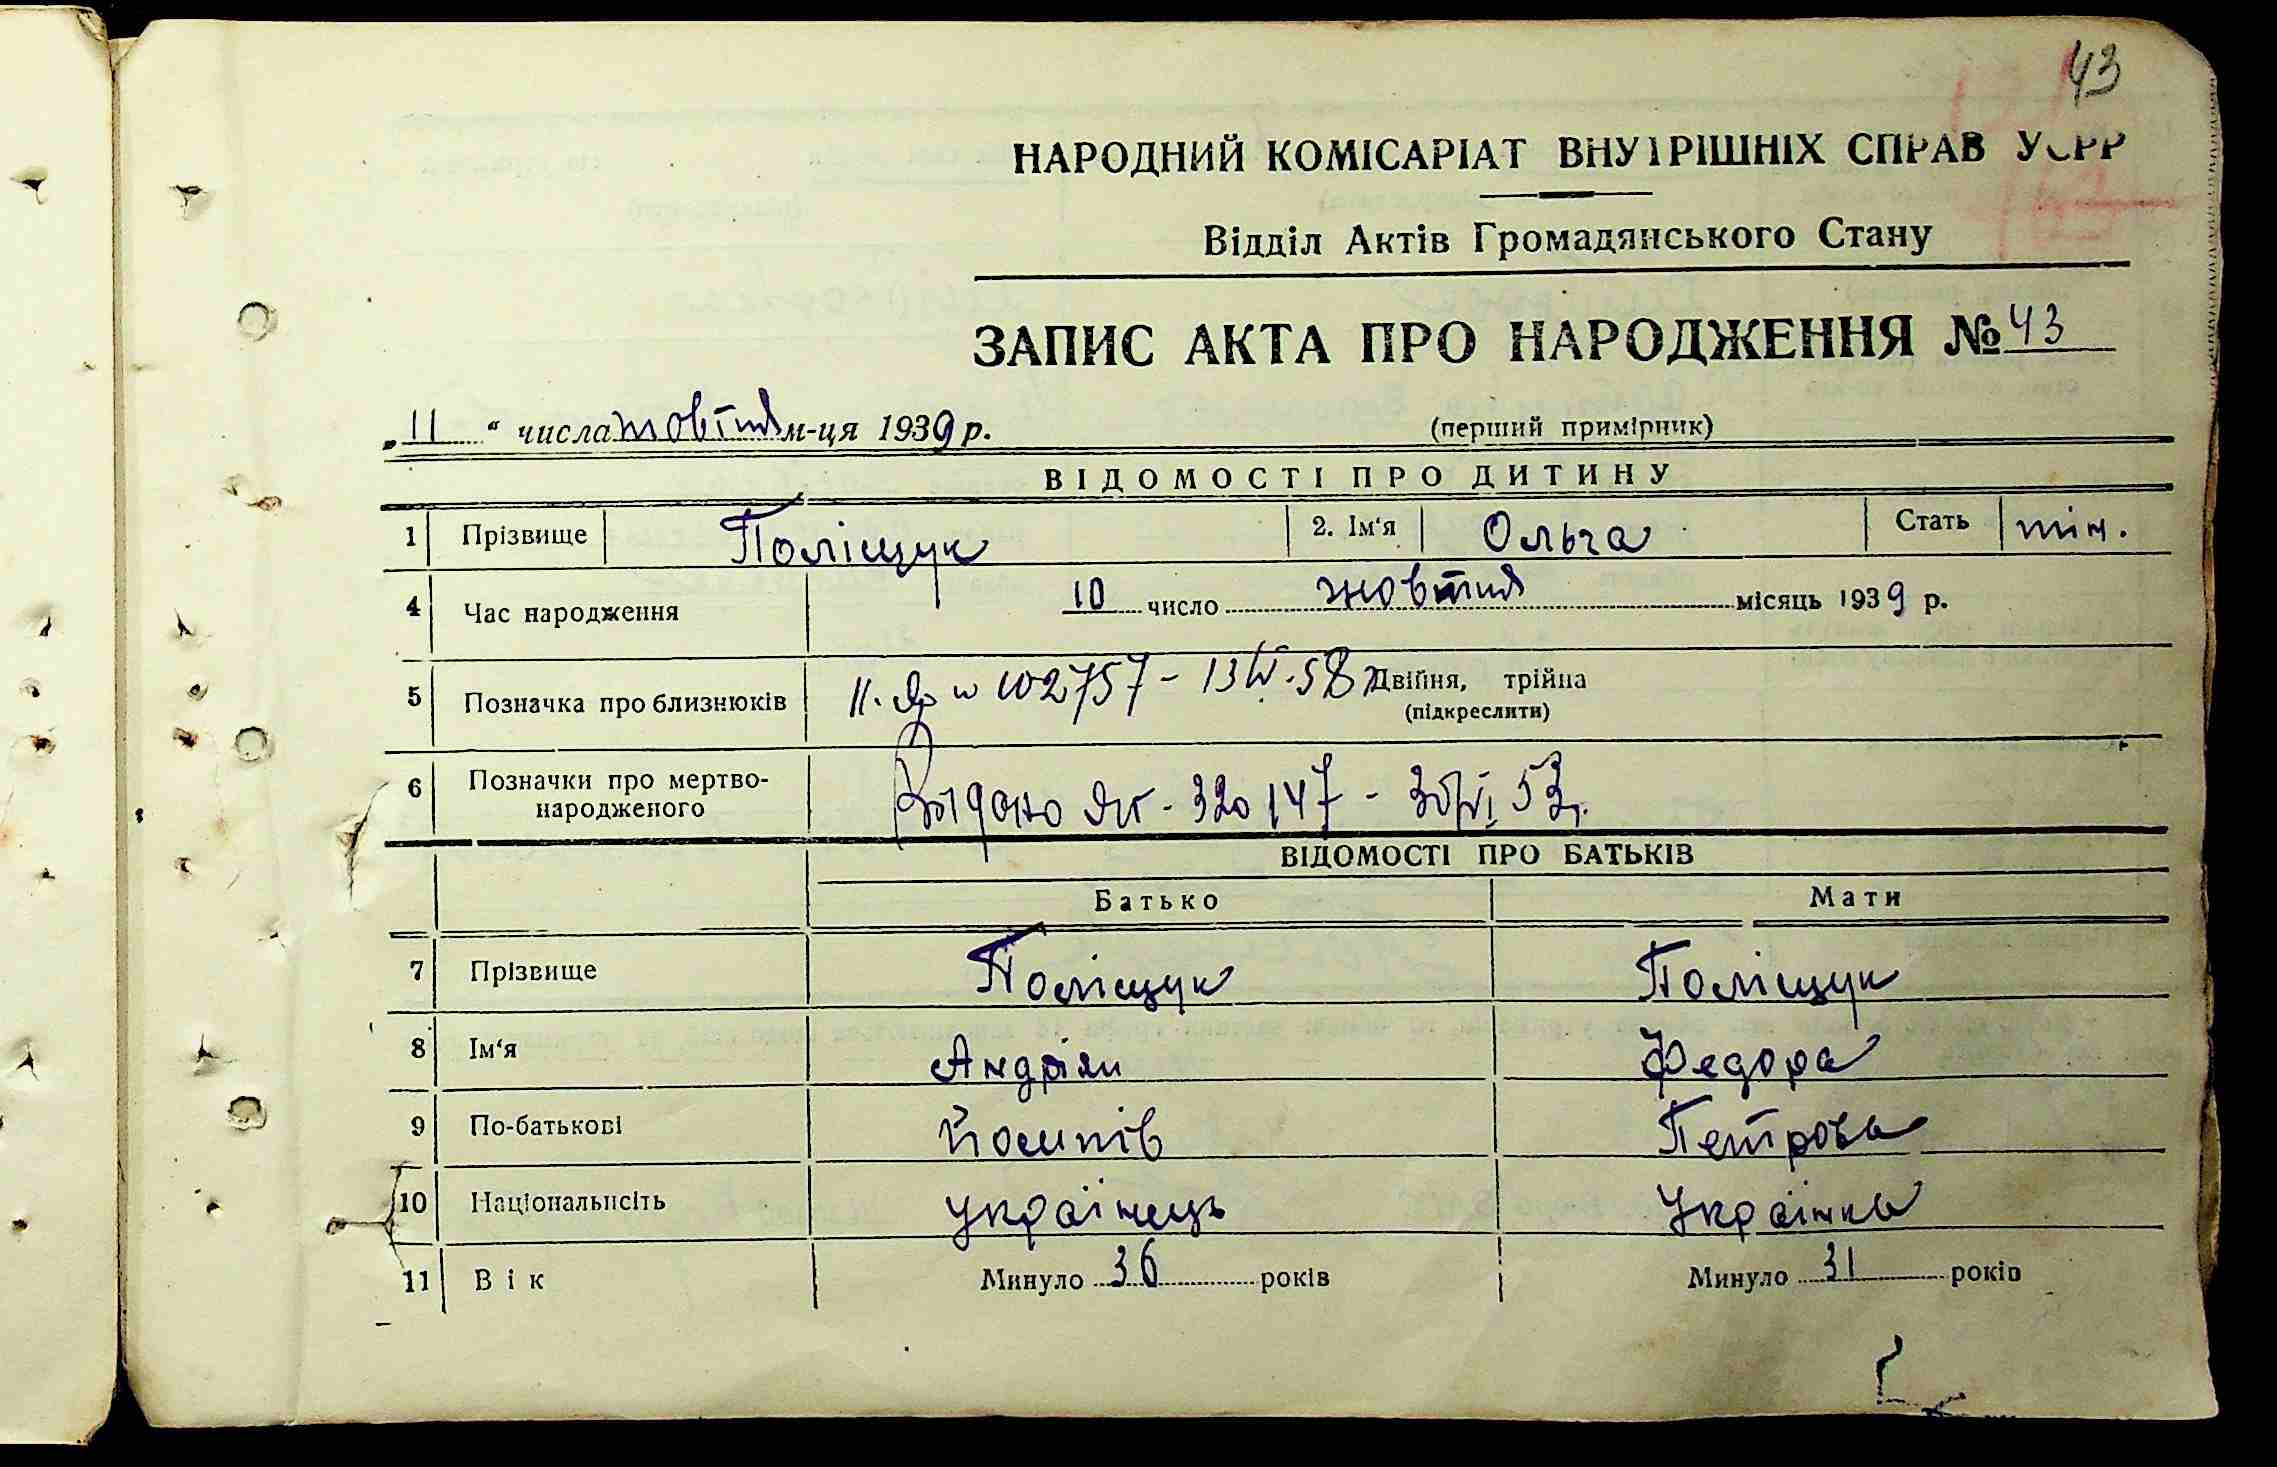 43
НАРОДНИЙ КОМІСАРІАТ ВНУТРІШНІХ СПРАВ УСРР
Відділ Актів Громадянського Стану
ЗАПИС АКТА ПРО НАРОДЖЕННЯ № 43
„11“ числа жовтня м-ця 1939 р. (перший примірник)
ВІДОМОСТІ ПРО ДИТИНУ
1 Прізвище Поліщук 2. Ім‘я Ольга Стать жін.
4 Час народження 10 число жовтня місяць 1939 р.
5 Позначка про близнюків 102757 - 13 58 Двійня, трійна
(підкреслити)
6 Позначки про мертво-
народженого Видано - 320147 - 53
ВІДОМОСТІ ПРО БАТЬКІВ
Батько Мати
7 Прізвище Поліщук Поліщук
8 Ім‘я Андріян Федора
9 По-батькові Йосипів Петрова
10 Національнсіть українець Українка
11 Вік Минуло 36 років Минуло 31 років